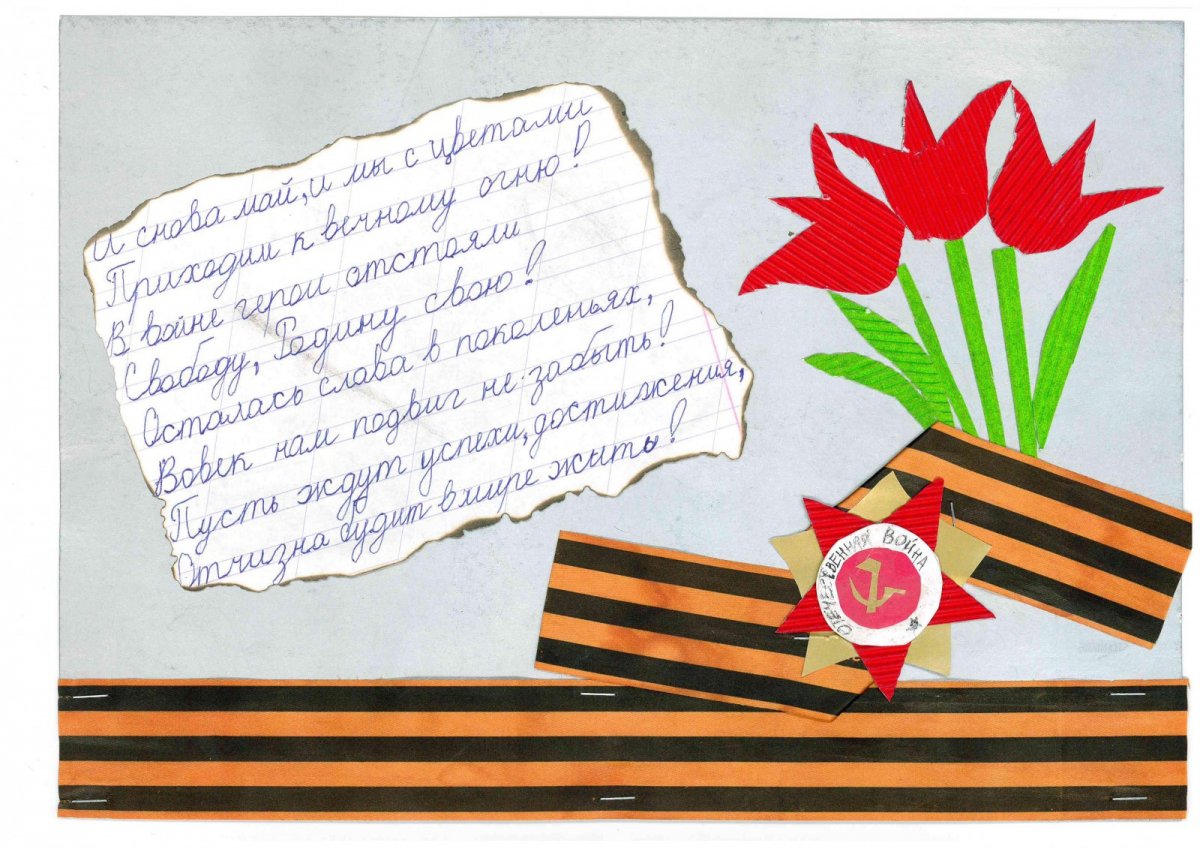 И снова май, и мы с цветами
Приходим к вечному огню!
В войне герои отстояли
Свободу, Родину свою!
Осталась слава в поколеньях,
Вовек нам подвиг не забыть!
Пусть ждут успехи, достижения,
Отчизна будит в мире жить!
ОТЕЧЕСТВЕННАЯ ВОЙНА